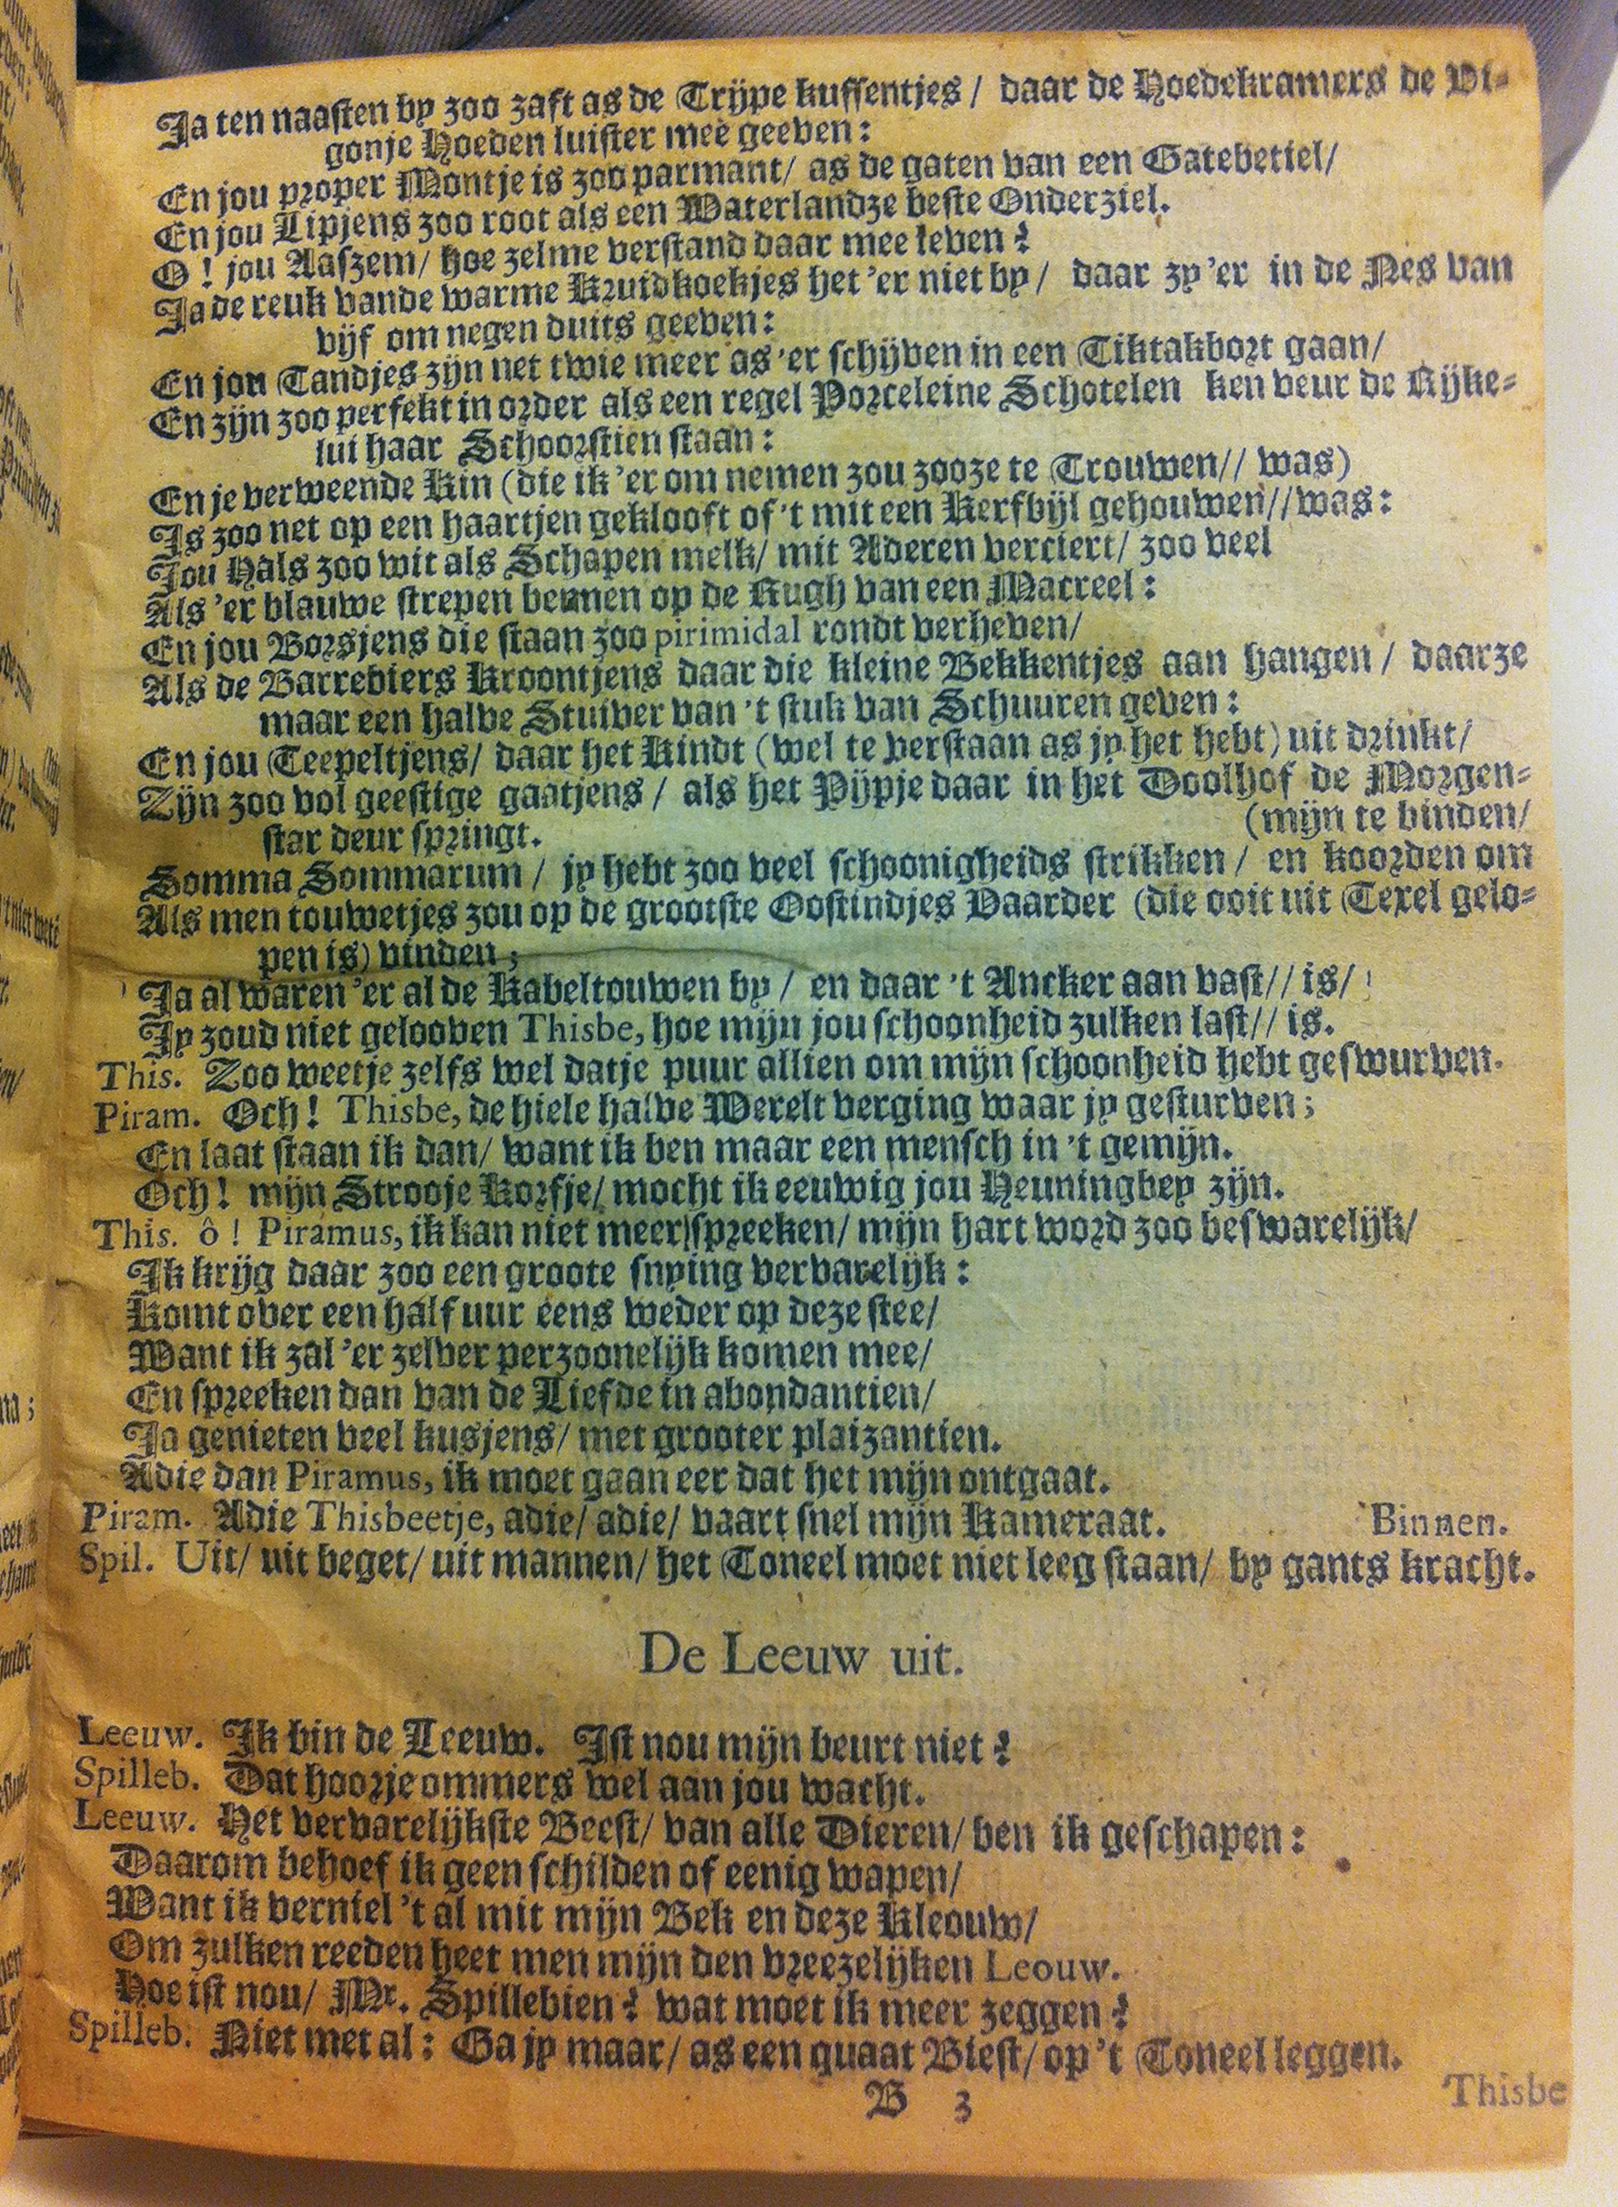 Ja ten naasten by zoo zaft as de Trijpe kussentjes / daar de Hoedekramers de Vi-
gonje Hoeden luister meê geeven:
En jou proper Montje is zoo parmant / as de gaten van een Gatebetiel /
En jou Lipjens zoo root als een Waterlandze beste Onderziel.
O ! jou Aaszem / hoe zelme verstand daar mee leven ?
Ja de reuk vande warme Kruidkoekjes het 'er niet by / daar zy 'er in de Nes van
vijf om negen duits geeven:
En jou Tandjes zijn net twie meer as 'er schijven in een Tiktakbort gaan /
En zijn zoo perfekt in order als een regel Porceleine Schotelen ken veur de Rijke-
lui haar Schoorstien staan:
En je verweende Kin (die ik 'er om nemen zou zooze te Trouwen // was)
Is zoo net op een haartjen geklooft of 't mit een Kerfbijl gehouwen // was:
Jou Hals zoo wit als Schapen melk / mit Aderen verciert / zoo veel
Als 'er blauwe strepen bennen op de Rugh van een Macreel:
En jou Borsjens die staan zoo pirimidal rondt verheven /
Als de Barrebiers Kroontjens daar die kleine Bekkentjes aan hangen / daarze
maar een halve Stuiver van 't stuk van Schuuren geven:
En jou Teepeltjens / daar het Kindt (wel te verstaan as jy het hebt) uit drinkt /
Zijn zoo vol geestige gaatjens / als het Pijpje daar in het Doolhof de Morgen-
star deur springt. (mijn te binden /
Somma Sommarum / jy hebt zoo veel schoonigheids strikken / en koorden om
Als men touwetjes zou op de grootste Oostindjes Vaarder (die ooit uit Texel gelo-
pen is) vinden ;
Ja al waren 'er al de Kabeltouwen by / en daar 't Ancker aan vast // is /
Jy zoud niet gelooven Thisbe, hoe mijn jou schoonheid zulken last // is.
This. Zoo weetje zelfs wel datje puur allien om mijn schoonheid hebt geswurven.
Piram. Och ! Thisbe, de hiele halve Werelt verging waar jy gesturven ;
En laat staan ik dan / want ik ben maar een mensch in 't gemijn.
Och ! mijn Strooje Korfje / mocht ik eeuwig jou Heuningbey zijn.
This. ô ! Piramus, ik kan niet meer spreeken / mijn hart word zoo beswarelijk /
Ik krijg daar zoo een groote snying vervarelijk:
Komt over een half uur eens weder op deze stee /
Want ik zal 'er zelver perzoonelijk komen mee /
En spreeken dan van de Liefde in abondantien /
Ja genieten veel kusjens / met grooter plaizantien.
Adie dan Piramus, ik moet gaan eer dat het mijn ontgaat.
Piram. Adie Thisbeetje, adie / adie / vaart snel mijn Kameraat. Binnen.
Spil. Uit / uit beget / uit mannen / het Toneel moet niet leeg staan / by gants kracht.
De Leeuw uit.
Leeuw. Ik bin de Leeuw. Ist nou mijn beurt niet ?
Spilleb. Dat hoorje ommers wel aan jou wacht.
Leeuw. Het vervarelijkste Beest / van alle Dieren / ben ik geschapen:
Daarom behoef ik geen schilden of eenig wapen /
Want ik verniel 't al mit mijn Bek en deze Kleouw /
Om zulken reeden heet men mijn den vreezelijken Leouw.
Hoe ist nou / Mr. Spillebien ? wat moet ik meer zeggen ?
Spilleb. Niet met al: Ga jy maar / as een quaat Biest / op 't Toneel leggen.
B 3 Thisbe